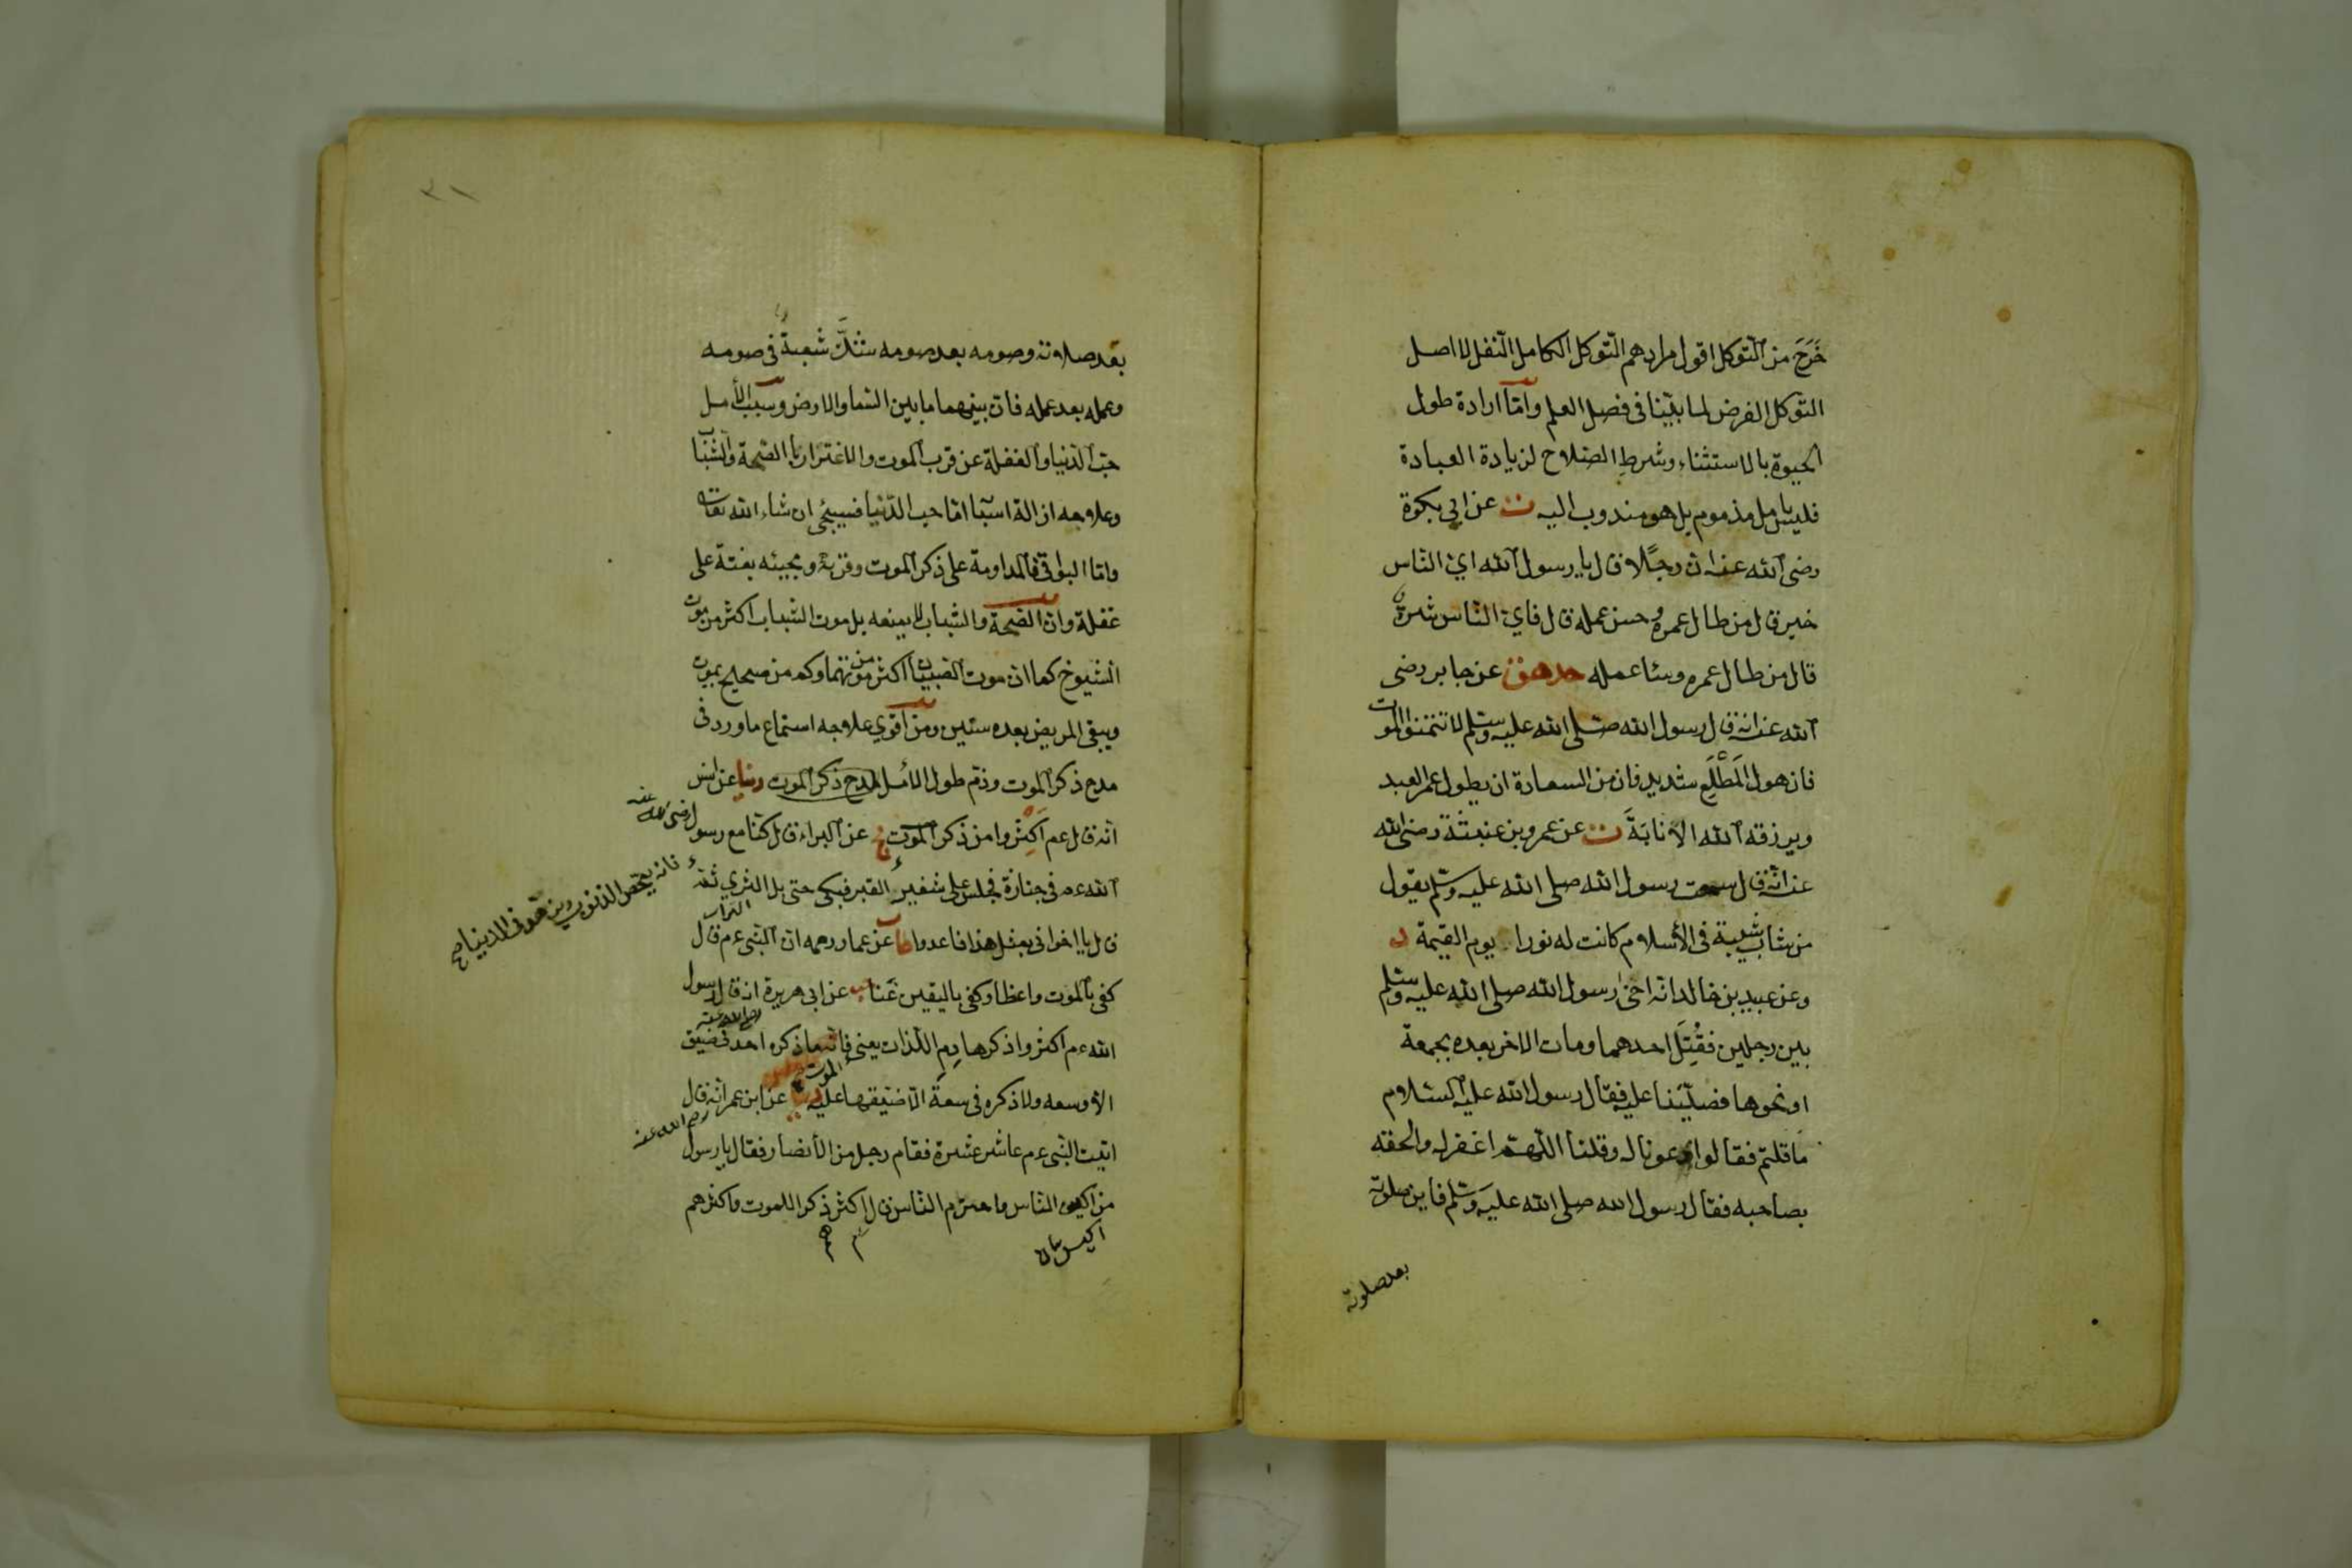 خَرَجَ من التوكل اقول مرادهم التوكل الكامل النفل لا اصل
التوكل الفرض لما بيّنا فى فصل العلم وامّا ارادة طول
الحيوة بالاستثناء وشرط الصّلاح لزيادة العبادة
فليس بامل مذموم بل هو مندوب اليه ت عن ابي بكرة
رضى الله عنه ان رجلًا قال يا رسول الله اي الناس
خير قال من طال عمره وحسن عمله قال فاي الناس شر
قال من طال عمره وساء عمله حد هق عن جابر رضى
الله عنه انه قال رسول الله صلى الله عليه وسلم لا تتمنوا الموت
فان هول المطّلع شديد فان من السعادة ان يطول عمر العبد
ويرزقه الله الانابة ت عن عمرو بن عنبثة رضى الله
عنه انّه قال سمعت رسول الله صلى الله عليه وسلم يقول
من شاب شيبة فى الأسلام كانت له نورا يوم القيمة د
وعن عبيد بن خالد انه اخىٰ رسول الله صلى الله عليه وسلم
بين رجلين فقُتِلَ احدهما ومات الاخر بعده بجمعة
او نحوها فصلّينا عليه فقال رسول الله عليه السّلام
ما قلتم فقالوا دعونا له وقلنا اللّهمّ اغفر له والحقه
بصاحبه فقال رسول الله صلى الله عليه وسلم فاين صلوته
بعد صلوته
٣١
بعد صلاوته وصومه بعد صومه شكّ شعبة فى صومه
وعمله بعد عمله فان بينهما ما بين السّما والارض وسبب الأمل
حبّ الدّنيا والغفلة عن قرب الموت والاغترار بالصّحة والشّباب
وعلاجه ازالة اسبابها امّا حبّ الدّنيا فسيجئ ان شاء الله تعالى
وامّا البواقى فالمداومة على ذكر الموت وقربه ومجيئه بغتة على
غفلة وانّ الصّحة والشّباب لا يمنعه بل موت الشّباب اكثر من موت
الشيوخ كما انّ موت الصّبيان اكثر من موتهما وكم من صحيح يموت
ويبقى المريض بعده سنين ومن اقوي علاجه استماع ما ورد فى
مدح ذكر الموت وذمّ طول الأمل مدح ذكر الموت دنيا عن انس
رضى الله عنه
انّه قال عم اكثروا من ذكر الموت عن البراء قال كنّا مع رسول
فانه يمحص الذنوب ويزهّد فى الدنيا صح
الله عم فى جنازة فجلس على شفير القبر فبكى حتى بل الثرى ثمّ
التراب
قال يا اخوانى بمثل هذا فاعدوا طب عن عمار رحمه انّ النّبى عم قال
كفى بالموت واعظا وكفى باليقين غنا حب عن ابى هريرة انه قال رسول
رضى الله عنه
الله عم اكثروا ذكر هادم اللّذات يعنى الموت فانّه ما ذكره احد فى ضيق
الا وسعه ولا ذكره فى سعة الّا ضيّقها عليه دنيا عن ابن عمر انّه قال
رضى الله عنه
اتيت النّبى عم عاشر عشرة فقام رجل من الأنصار فقال يا رسول
من اكيس النّاس واحزم النّاس قال اكثر ذكرا للموت واكثرهم
اكيس
هم